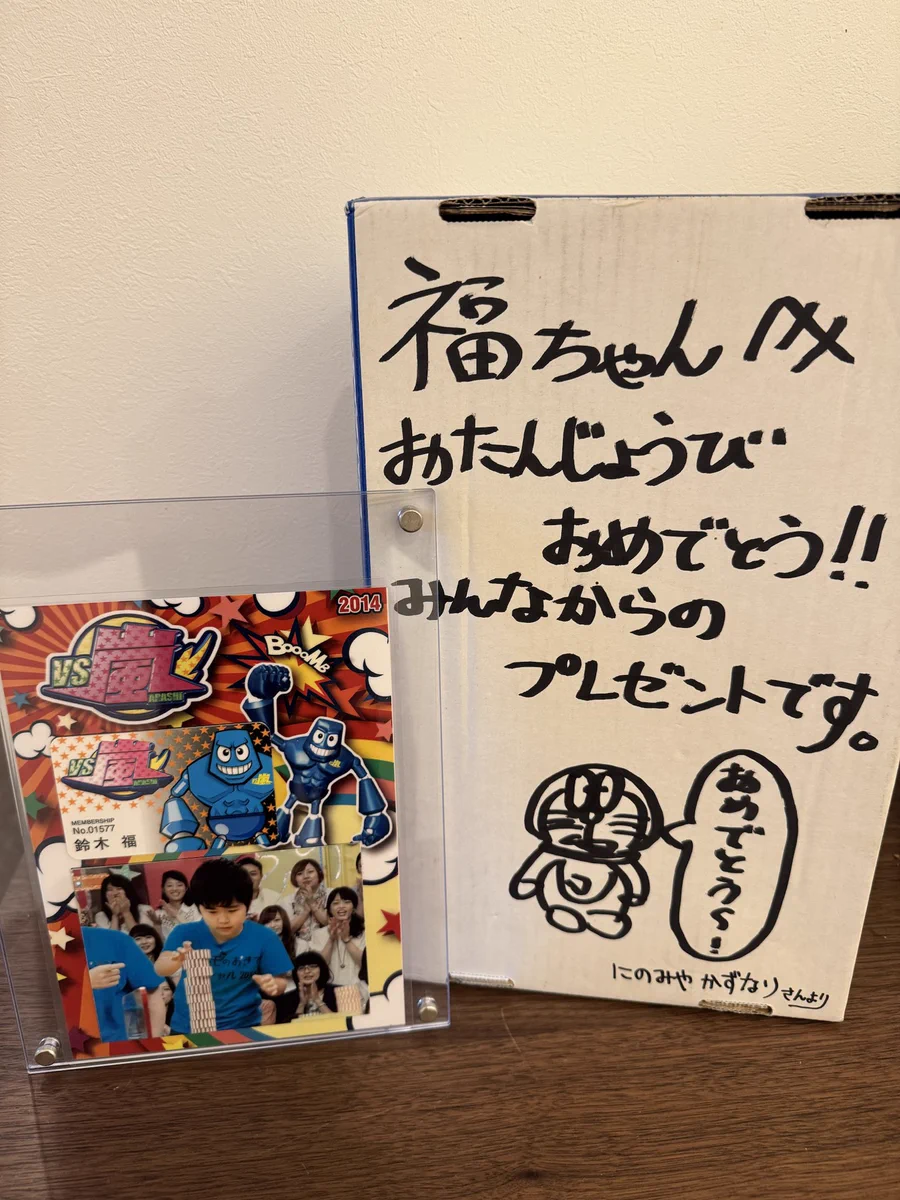 福ちゃんへ
おたんじょうび
おめでとう!!
みんなからの
プレゼントです。
おめでとう〜!
にのみや かずなり さんより
2014
VS嵐
ARASHI
BOOOMB
VS嵐
ARASHI
MEMBERSHIP
No.01577
鈴木 福